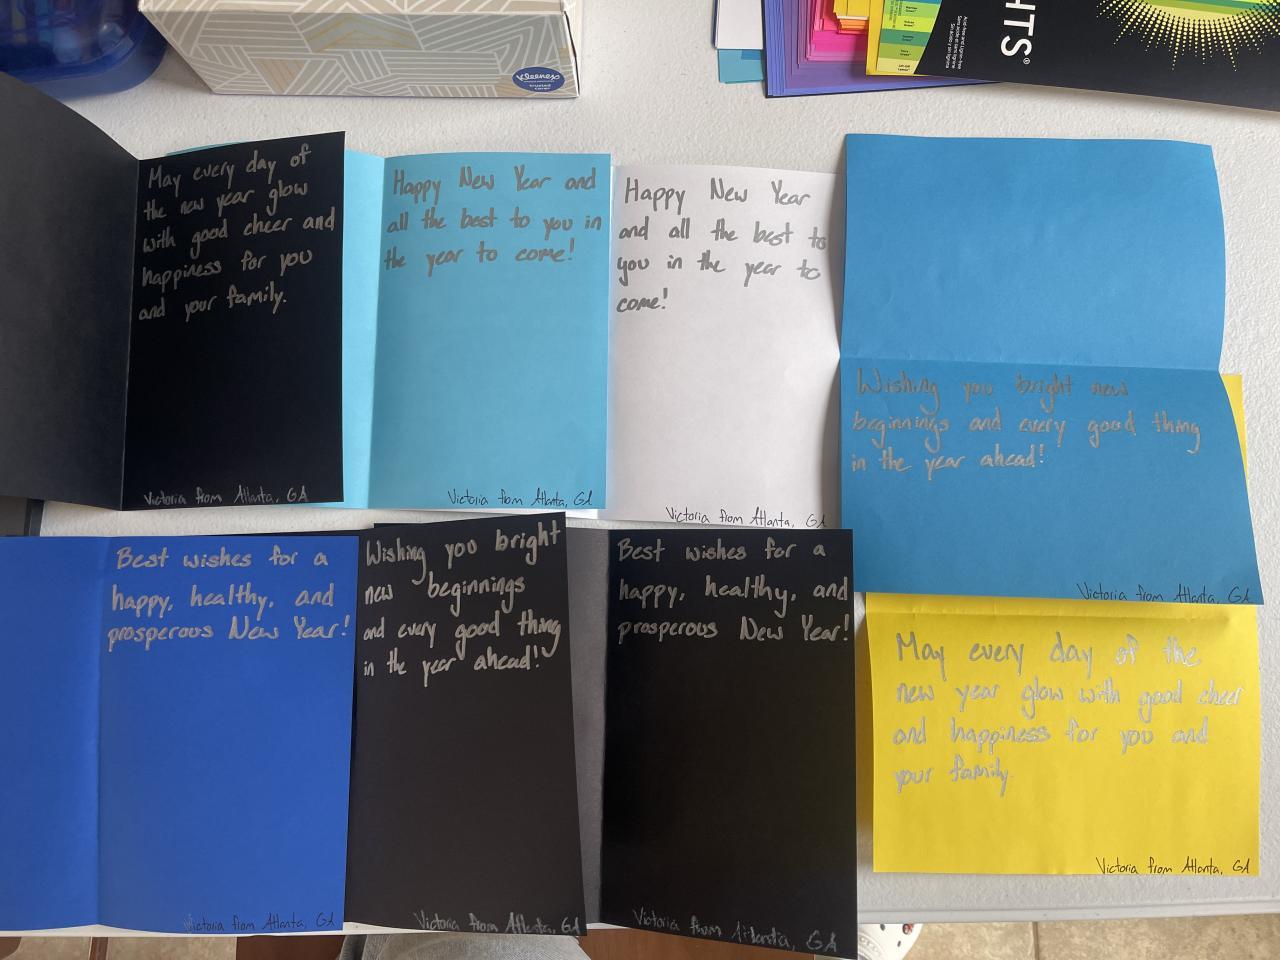 Kleenex
trusted care
HTS®
Acid-free and Lignin-free
Sans acide et sans lignine
Sin ácido y sin lignina
May every day of
the new year glow
with good cheer and
happiness for you
and your family.
Victoria from Atlanta, GA
Happy New Year and
all the best to you in
the year to come!
Victoria from Atlanta, GA
Happy New Year
and all the best to
you in the year to
come!
Victoria from Atlanta, GA
Wishing you bright new
beginnings and every good thing
in the year ahead!
Victoria from Atlanta, GA
Best wishes for a
happy, healthy, and
prosperous New Year!
Victoria from Atlanta, GA
Wishing you bright
new beginnings
and every good thing
in the year ahead!
Victoria from Atlanta, GA
Best wishes for a
happy, healthy, and
prosperous New Year!
Victoria from Atlanta, GA
May every day of the
new year glow with good cheer
and happiness for you and
your family.
Victoria from Atlanta, GA